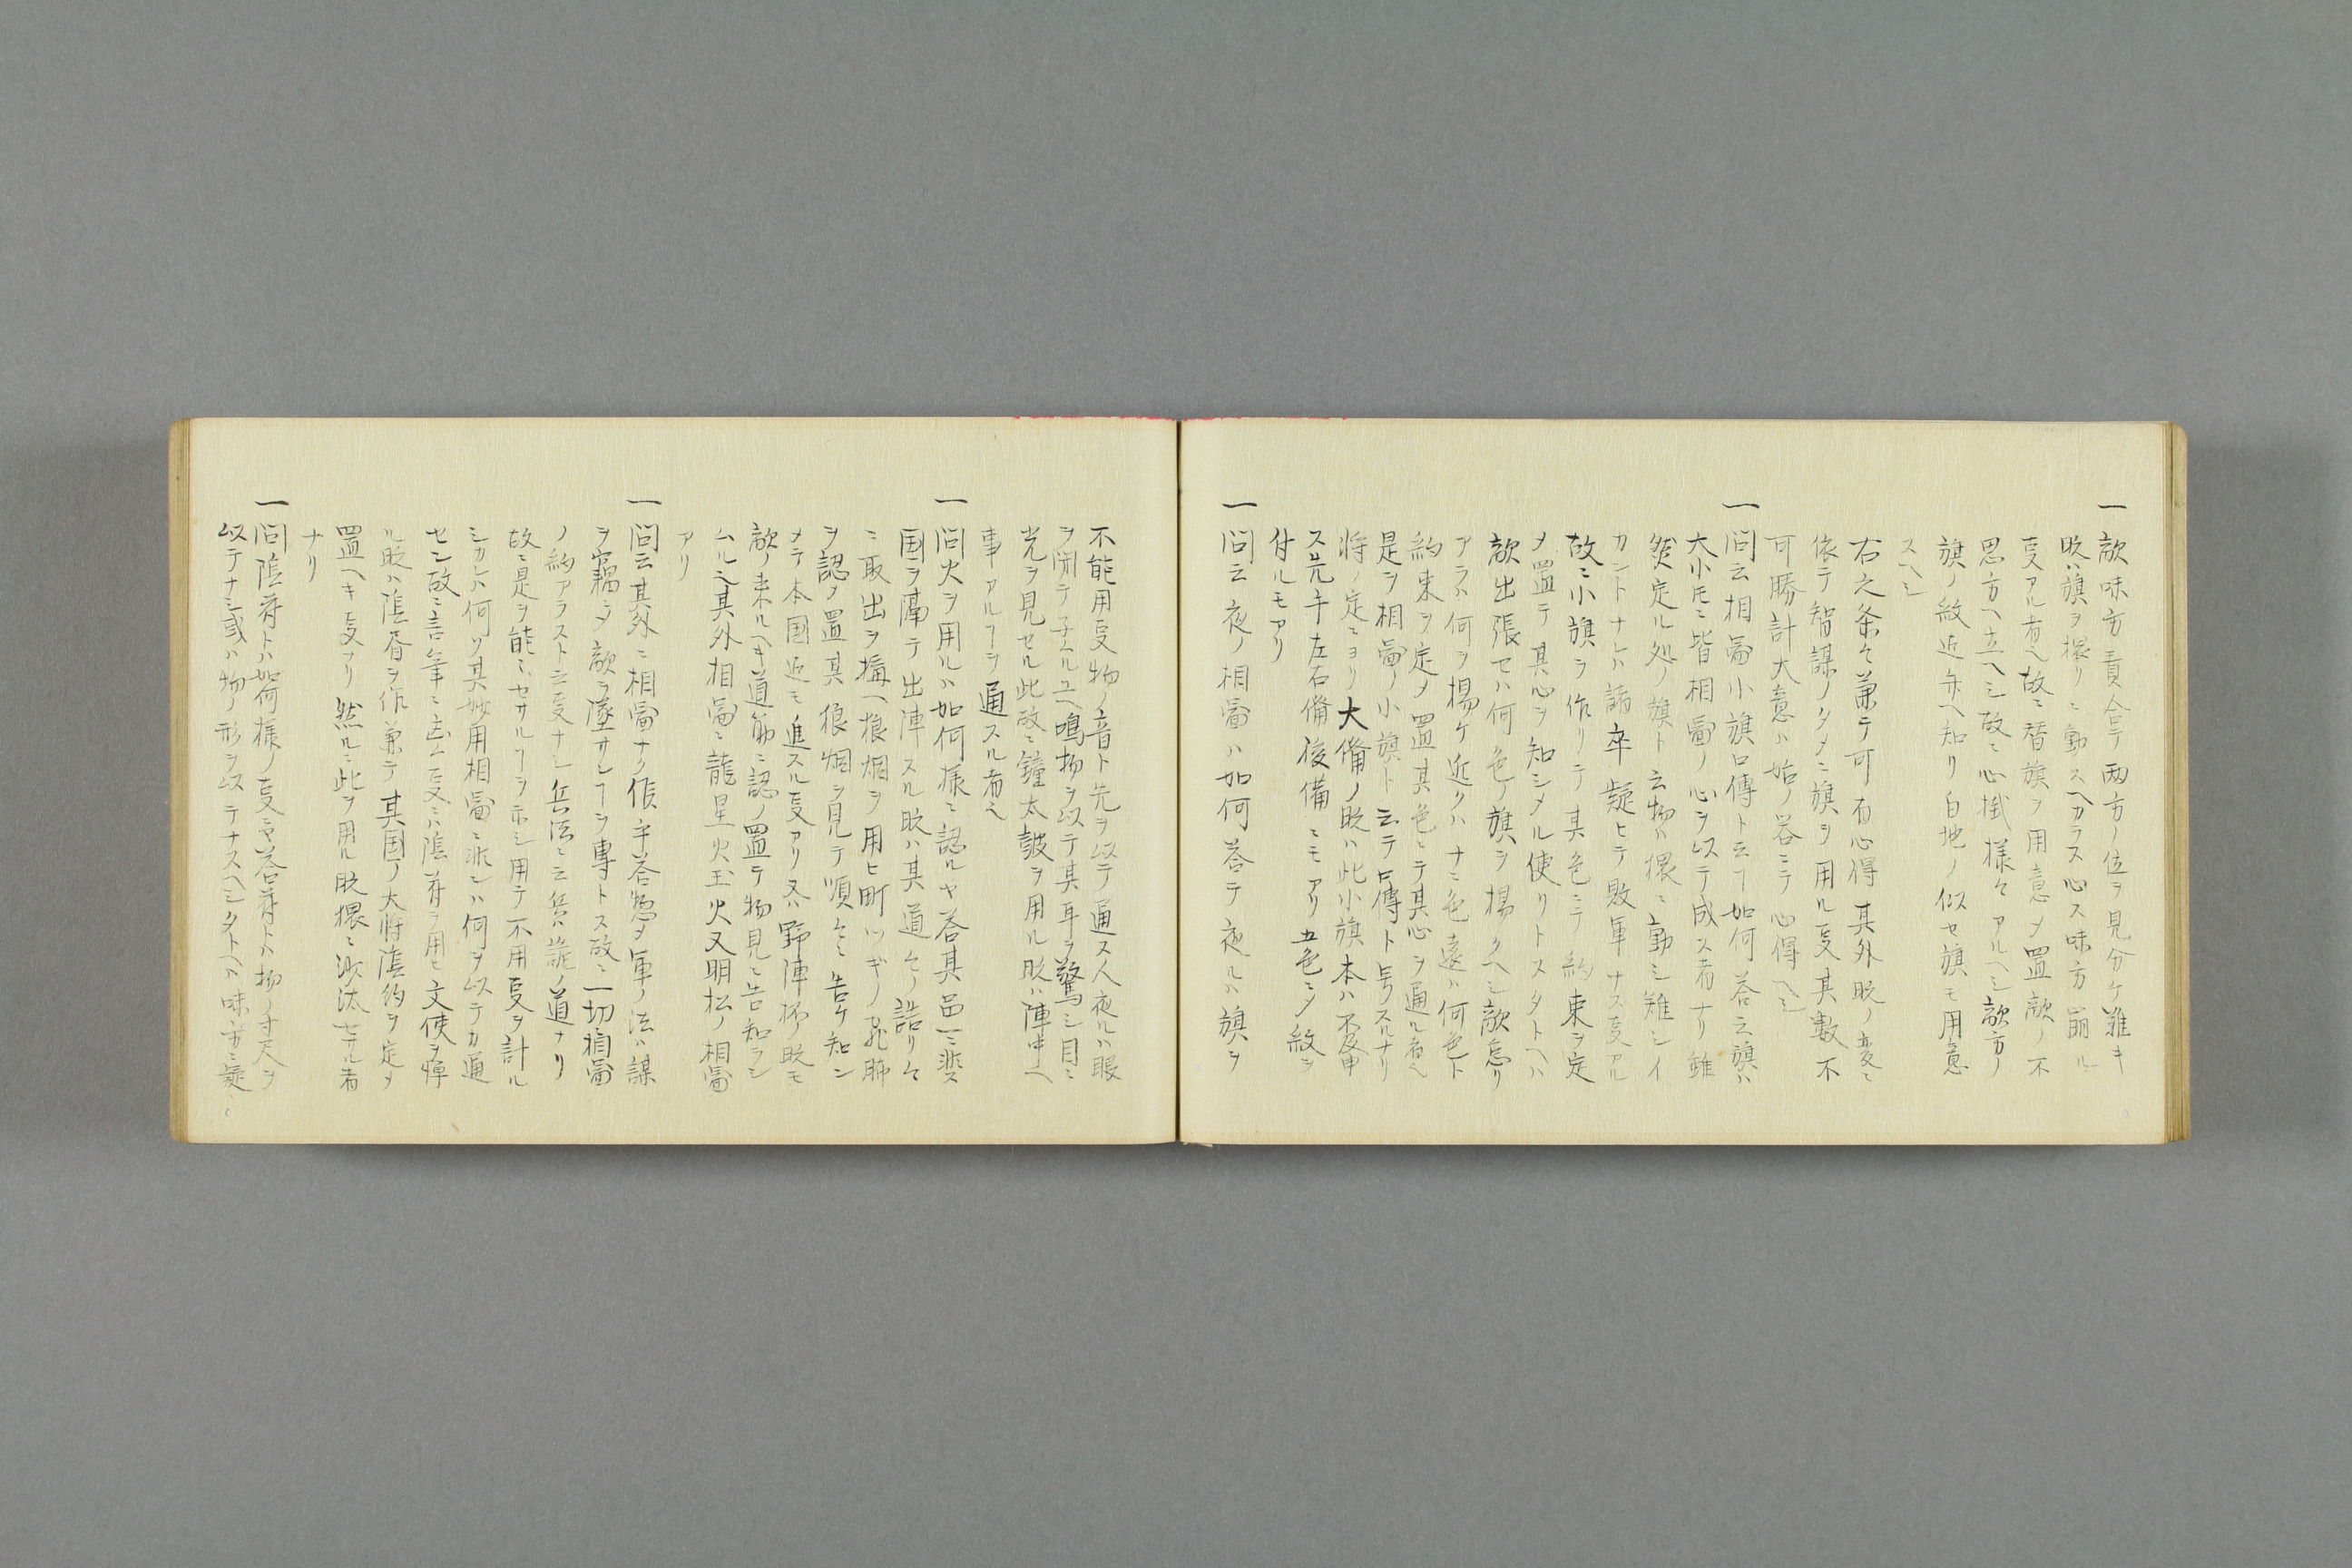 一 敵味方責合テ両方ノ位ヲ見分ケ難キ
時ハ旗ヲ猥リニ動スヘカラス心ス味方崩ル
事アル者ヘ故ニ替旗ヲ用意メ置敵ノ不
思方ヘ立ヘシ故ニ心掛様々アルヘシ敵方ノ
旗ノ紋近弁ヘ知リ白地ノ似セ旗モ用意
スヘシ
右之条々兼テ可有心得其外時ノ変ニ
依テ智謀ノタメニ旗ヲ用ル事其数不
可勝計大意ハ始ノ答ニテ心得ヘシ
一 問云相圖小旗口傳ト云ヿ如何答云旗ハ
大小圧ニ皆相圖ノ心ヲ以テ成ス者ナリ雖
然定ル処ノ旗ト云物ハ猥ニ動シ難シイ
カントナレハ諸卒疑ヒテ敗軍ナス事アル
故ニ小旗ヲ作リテ其色ニテ約束ヲ定
メ置テ其心ヲ知シメル使リトスタトヘハ
敵出張セハ何色ノ旗ヲ揚クヘシ敵急リ
アラハ何ヲ揚ケ近クハナニ色遠ハ何色ト
約束ヲ定メ置其色ニテ其心ヲ通ル者ヘ
是ヲ相圖ノ小旗ト云テ口傳ト号スルナリ
将ノ定ニヨリ大備ノ時ハ此小旗本ハ不及申
ス先手左右備後備ニモアリ五色ニメ紋ヲ
付ルモアリ
一 問云夜ノ相圖ハ如何答テ夜ルハ旗ヲ
不能用事物ノ音ト光ヲ以テ通ス人夜ルハ眼
ヲ閉テ子ムルユヘ鳴物ヲ以テ其耳ヲ驚シ目ニ
光ヲ見セル此故ニ鐘太皷ヲ用ル時ハ陣中ヘ
事アルヿヲ通スル者ヘ
一 問火ヲ用ルハ如何様ニ認ルヤ答其品一ニ非ス
国ヲ隔テ出陣スル時ハ其道々ノ詰リ々
ニ取出ヲ搆ヘ狼烟ヲ用ヒ町ツギノ飛脚
ヲ認メ置其狼烟ヲ見テ順々ニ告ケ知ン
メテ本国近モ進スル事アリ又ハ野陣杯ノ時モ
敵ノ来ルヘキ道筋ニ認メ置テ物見ニ告知ラシ
ムル之其外相圖ニ龍星火玉火又明松ノ相圖
アリ
一 問云其外ニ相圖ナク候乎答惣メ軍ノ法ハ謀
ヲ竊メ敵ヲ墜サレヿヲ專トス故ニ一切相圖
ノ約アラスト云事ナシ兵法ニ云兵ハ詭ノ道ナリ
故ニ是ヲ能ニセサルヿヲ示シ用テ不用事ヲ計ル
シカレハ何ソ其妙用相圖ニ非レハ何ヲ以テカ通
セシ故ニ言筆ニ述ム事ニハ陰符ヲ用ヒ文使ヲ憚
ル時ハ陰書ヲ作兼テ其国ノ大将陰約ヲ定メ
置ヘキ事ナリ然ルニ此ヲ用ル時猥ニ沙汰セサル者
ナリ
一 問陰符トハ如何様ノ事ヤ答符トハ物ノ寸尺ヲ
以テナシ或ハ物ノ形ヲ以テナスヘシタトヘハ味方ニ疑